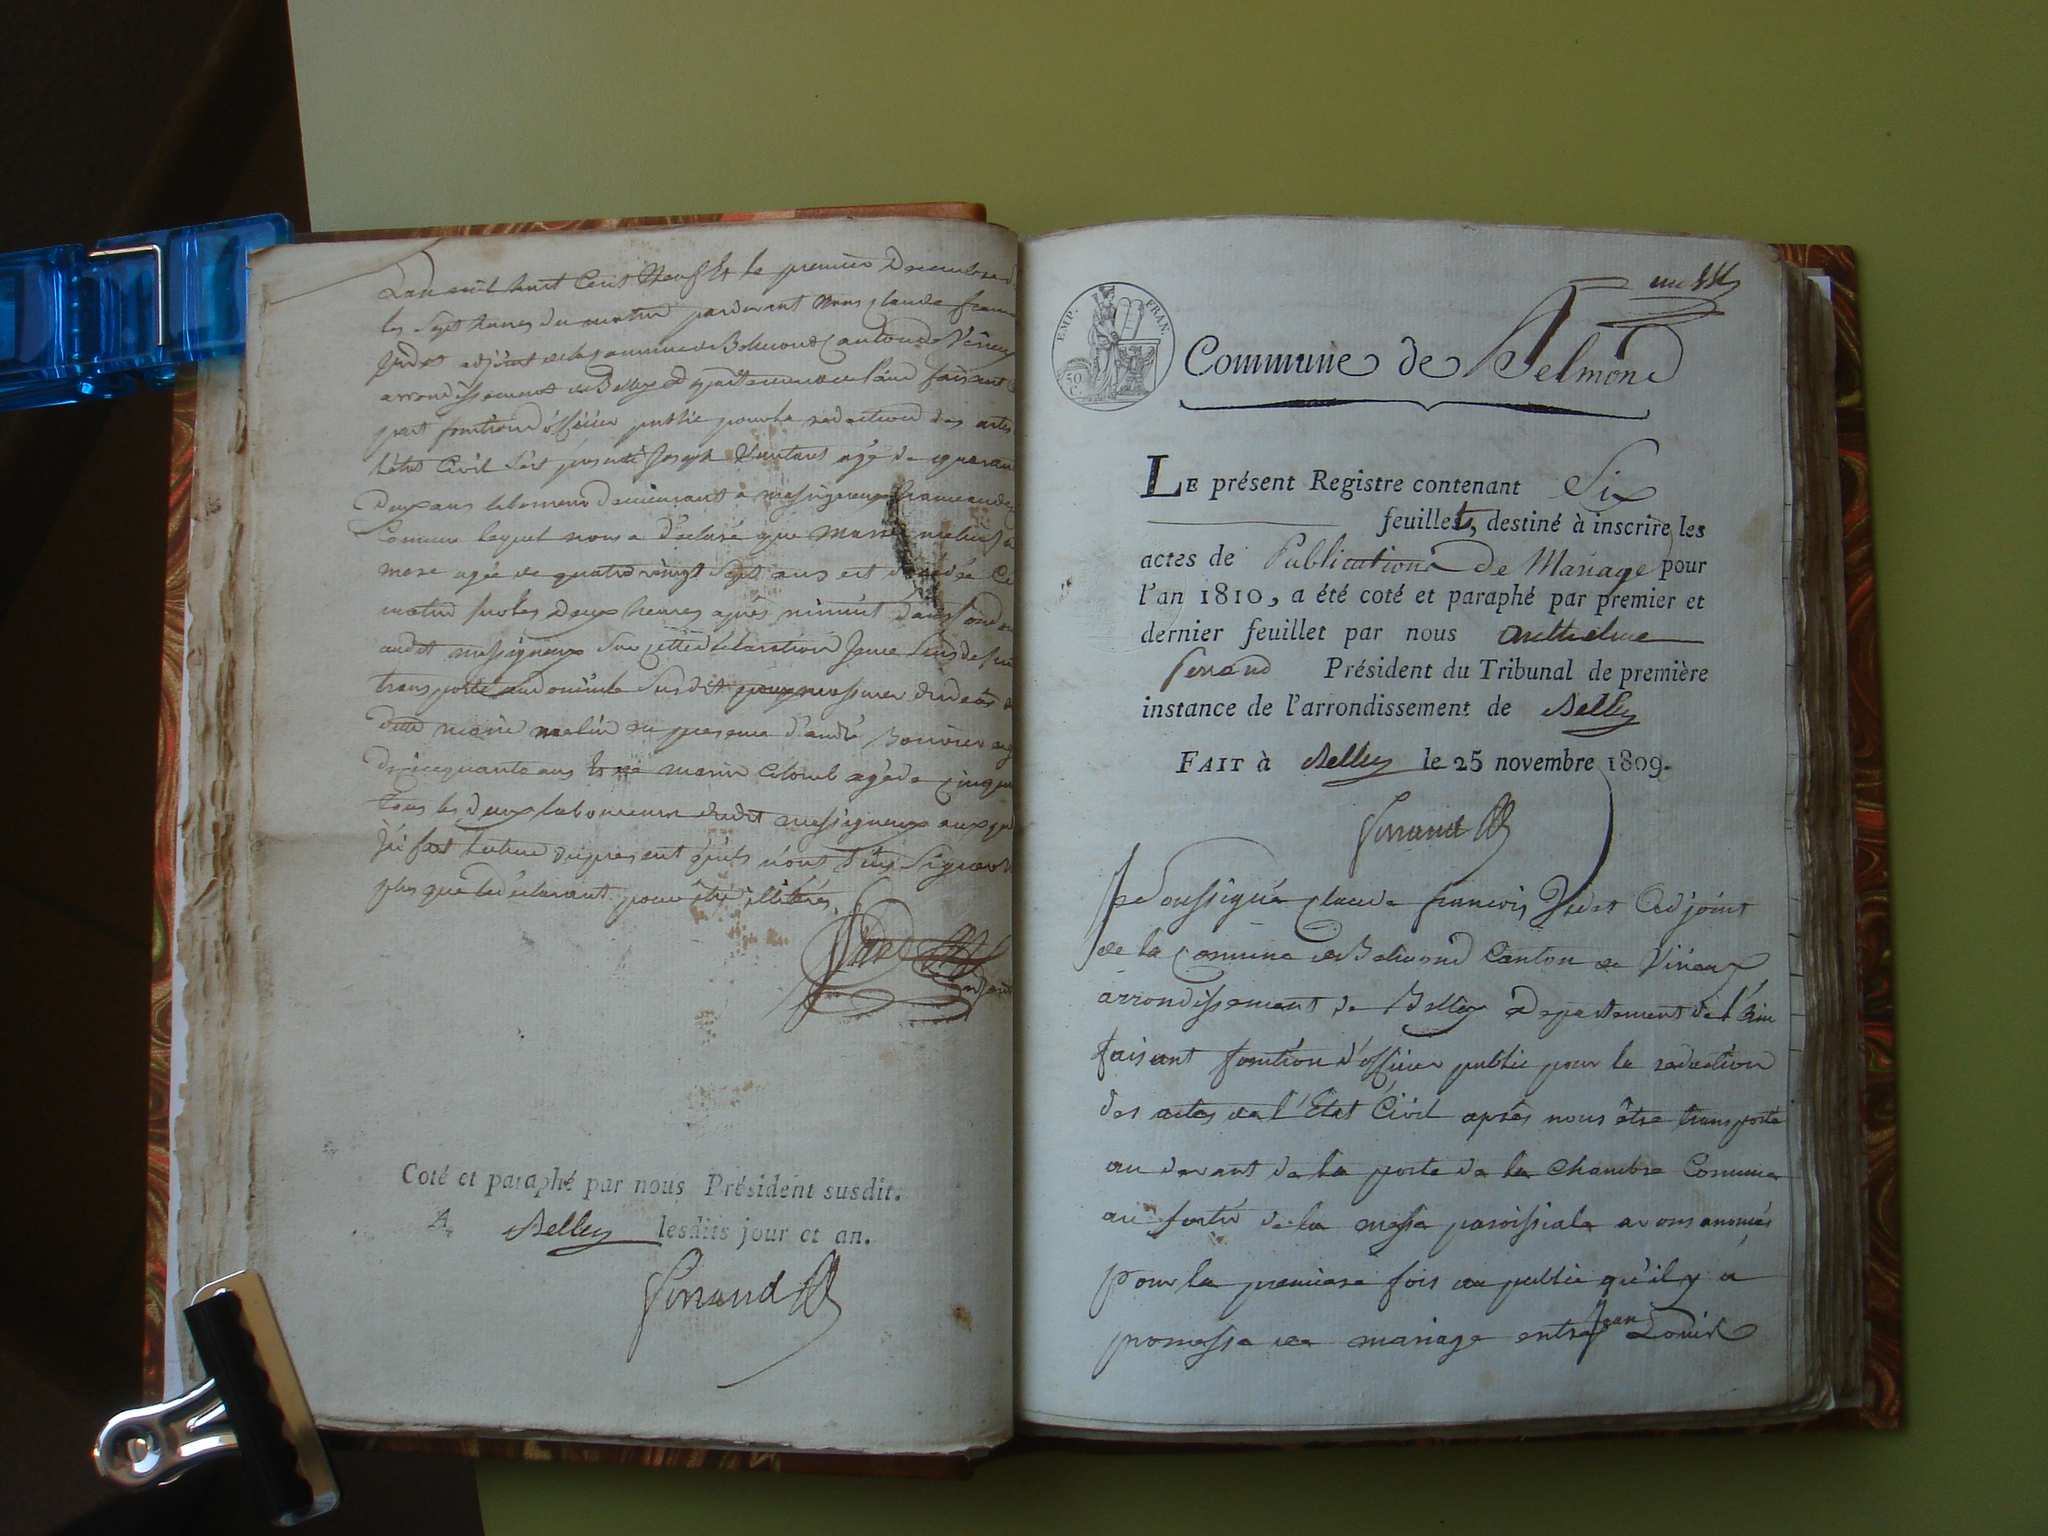 L'an mil huit Cent Neuf et le premier Decembre
les Sept heures du matin pardevant Nous Claude
adjoint de la Commune de Belmond Canton de
arrondissement de Belley departement de l'ain faisant
fonction d'officier public pour la redaction des actes
létat Civil s'est presenté Joseph agé de
deux ans laboureur demeurant a messigneux
Comune lequel nous a déclaré que
mere agée de quatre vingt Sept ans est Ce
matin sur les deux heures après minuit dans
audit messigneux Sur cette déclaration
transporté au domicile Susdit pour
en presence d'andré agé
de cinquante ans agé de
tous les deux laboureurs dudit messigneux
J'ai fait lecture du present Signer
plus que le déclarant pour être illiterés
Coté et paraphé par nous Président susdit.
A Belley lesdits jour et an.
Ferrand
EMP. FRAN.
50 C.
Commune de Belmond
LE présent Registre contenant Six
feuillets, destiné à inscrire les
actes de Publications De Mariage pour
l'an 1810, a été coté et paraphé par premier et
dernier feuillet par nous Anthelme
Ferrand Président du Tribunal de première
instance de l'arrondissement de Belley
FAIT à Belley le 25 novembre 1809.
Ferrand
Je Soussigné Claude francois adjoint
de la Comune de Belmond Canton de Virieux
arrondissement de Belley Departement de l'Ain
faisant fonction d'officier public pour la redaction
des actes de l'Etat Civil après nous être transporté
au devant de la porte de la Chambre Comune
au sortir de la messe paroissiale avons anoncés
pour la premiere fois au public qu'il y a
promesse de mariage entre Jean Louis